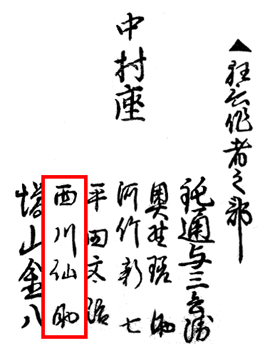 ▲狂言作者之部
中村座
鈍通与三兵衛
奥野瑳助
河竹新七
平田文治
西川仙助
増山金八